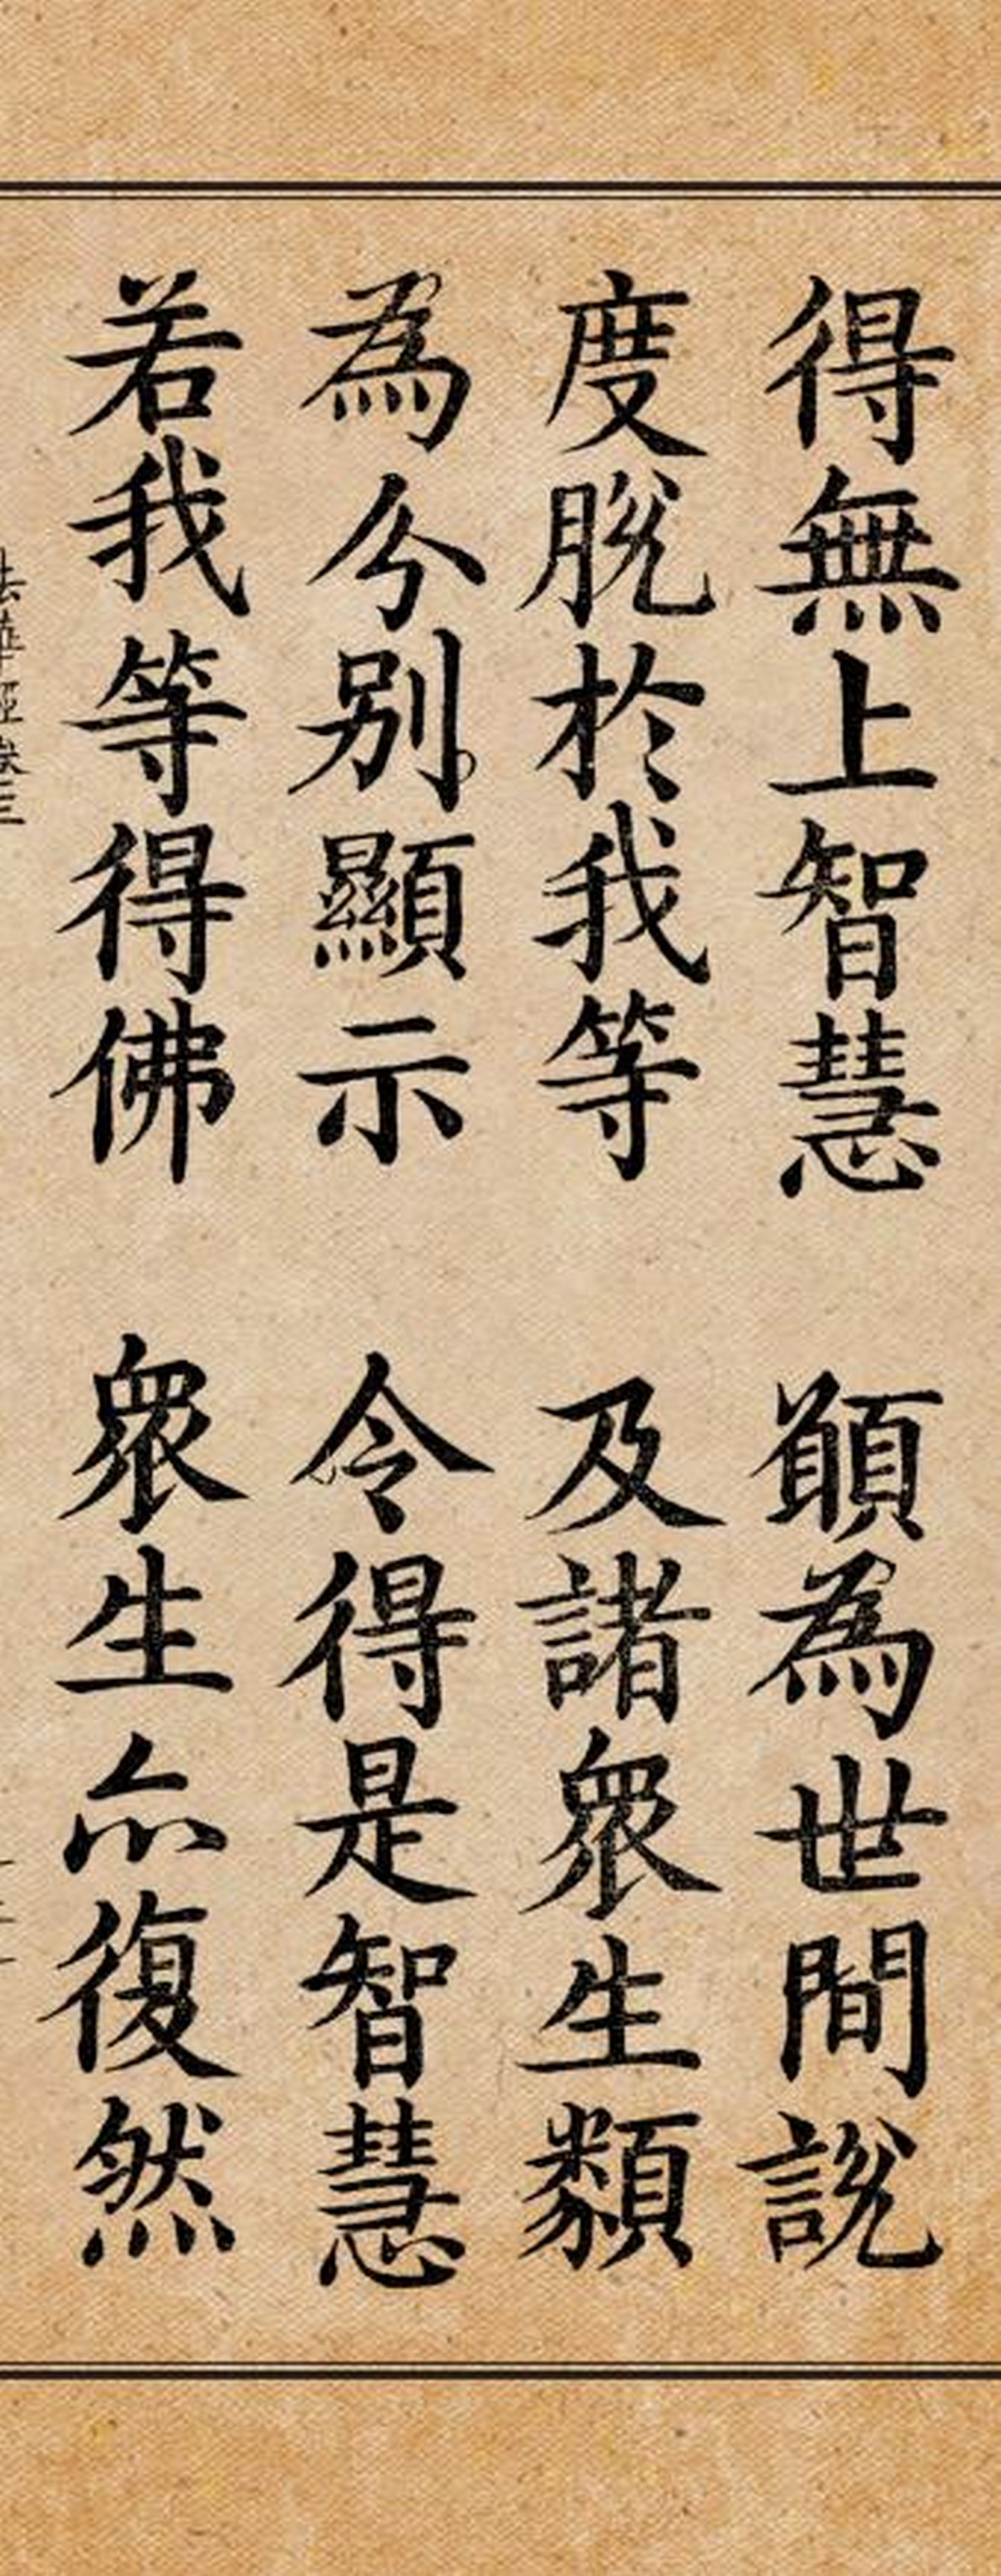 得無上智慧　願為世間說
度脫於我等　及諸衆生類
為分別顯示　令得是智慧
若我等得佛　衆生亦復然
法華經卷三